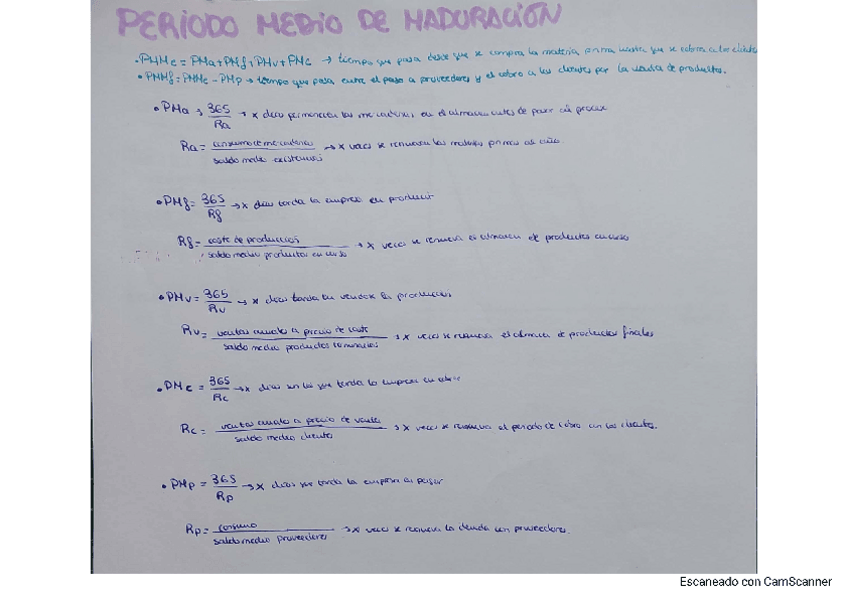 PERÍODO MEDIO DE MADURACIÓN
• PMMe = PMa + PMf + PMv + PMc → tiempo que pasa desde que se compra la materia prima hasta que se cobra a los clientes
• PMMf = PMMe - PMp → tiempo que pasa entre el pago a proveedores y el cobro a los clientes por la venta de productos.
• PMa = 365 / Ra → x días permanecen las mercaderías en el almacén antes de pasar
Ra = consumo de mercaderías / saldo medio existencias → x veces se renuevan las materias primas al año.
• PMf = 365 / Rf → x días tarda la empresa en producir
Rf = coste de producción / saldo medio productos en curso → x veces se renueva el almacén de productos en curso
• PMv = 365 / Rv → x días tarda en vender la producción
Rv = ventas anuales a precio de coste / saldo medio productos terminados → x veces se renueva el almacén de productos finales
• PMc = 365 / Rc → x días en los que tarda la empresa en cobrar
Rc = ventas anuales a precio de venta / saldo medio clientes → x veces se renueva el periodo de cobro con los clientes.
• PMp = 365 / Rp → x días que tarda la empresa en pagar
Rp = consumo / saldo medio proveedores → x veces se renueva la deuda con proveedores.
Escaneado con CamScanner